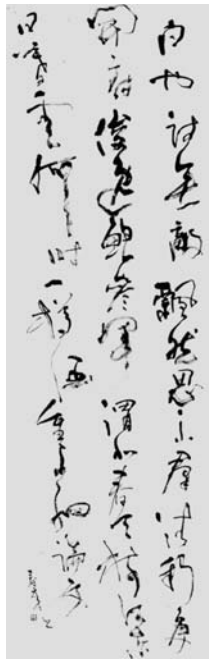 白也詩無敵飄然思不群清新庾
開府俊逸鮑參軍渭北春天樹江東
日暮雲何時一樽酒重與細論文